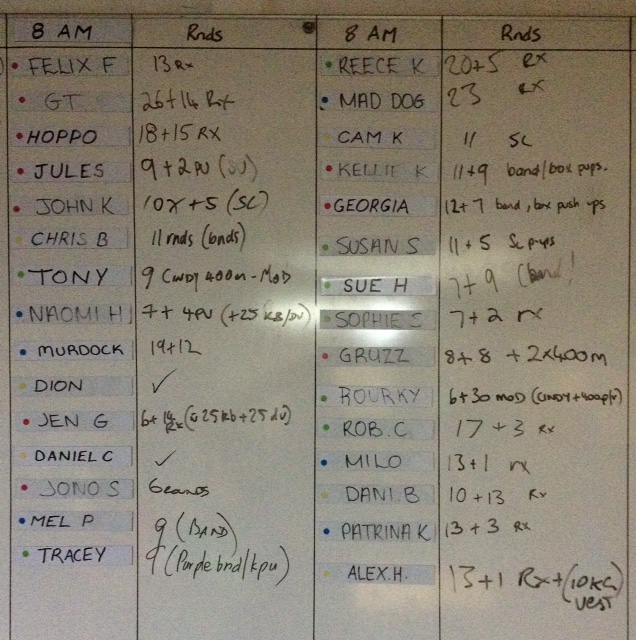 8 AM Rnds 8 AM Rnds
FELIX F 13 Rx REECE K 20+5 RX
GT 26+14 Rx MAD DOG 23 RX
HOPPO 18+15 RX CAM K 11 SC
JULES 9+2PU KELLIE K 11+9 band/box pups.
JOHN K +5 (SC) GEORGIA 12+7 band, box push ups
CHRIS B 11 rnds (bnds) SUSAN S 11+5 Sc pups
TONY 9 CINDY 400m-MOD SUE H 7+9 (band)
NAOMI H 7+4PU (+25 KB/DU) SOPHIE S 7+2 rx
MURDOCK 19+12 GRUZZ 8+8 + 2x400m
DION ✓ ROURKY 6+30 MOD (CINDY+400
JEN G 6+14 25kb+25du) ROB.C 17+3 Rx
DANIEL C ✓ MILO 13+1 rx
JONO S DANI.B 10+13 Rx
MEL P 9 (BAND) PATRINA K 13+3 Rx
TRACEY 9 (Purple bnd/kpu) ALEX.H. 13+1 Rx+(10KG vest)